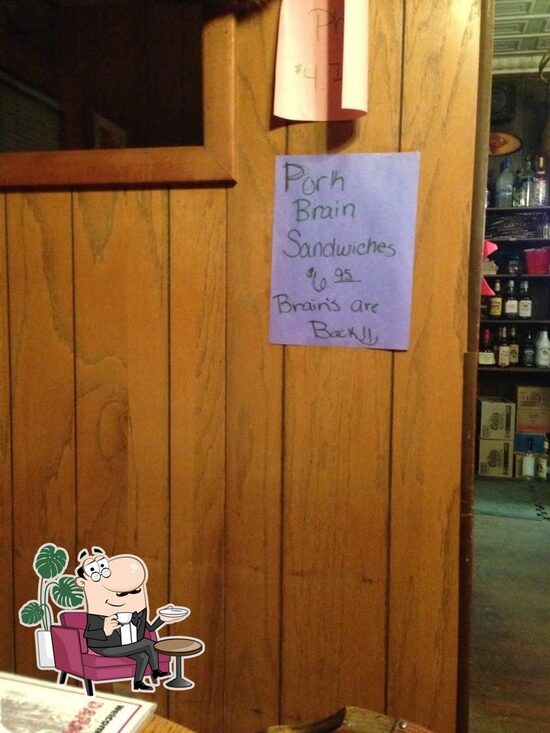 $4
Pork
Brain
Sandwiches
$6.95
Brain's are
Back!!
Welcom